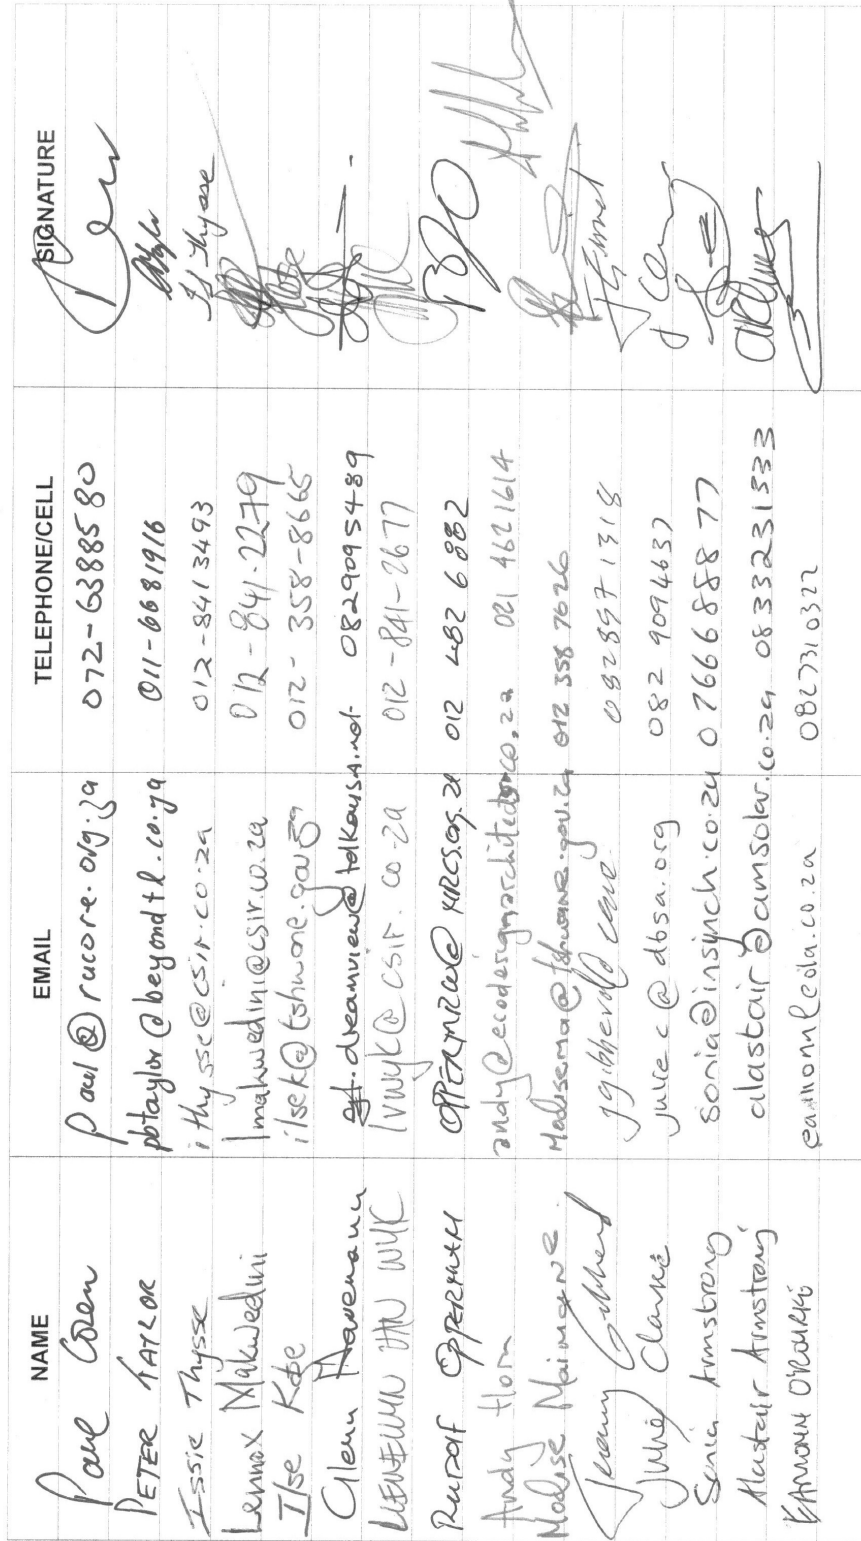 NAME EMAIL TELEPHONE/CELL SIGNATURE
Paul Cohen paul@rucore.org.za 072-6388580
PETER TAYLOR pbtaylor@beyondtl.co.za 011-6681916
Issie Thysse ithysse@csir.co.za 012-8413493 Thysse
Lennox Makwedini lmakwedini@csir.co.za 012-841-2279
Ilse Kotze ilsek@tshwane.gov.za 012-358-8665
Glenn Havemann dreamview@telkomsa.net 0829095489
LLEWELLYN VAN WYK lvwyk@csir.co.za 012-841-2677
Rudolf OPPERMAN OPPERMRW@ 012 482 6882
Andy Horn andy@ecodesignarchitects.co.za 021 4621614
Modise Maimane Modisema@tshwane.gov.za 012 358 7626
Jeremy Gibberd 0828571318
Julie Clarke juliec@dbsa.org 082 9094637
Sonia Armstrong sonia@insynch.co.za 0766688877
Alastair Armstrong alastair@amsolar.co.za 0833231333
EAMONN O'ROURKE 0827310322